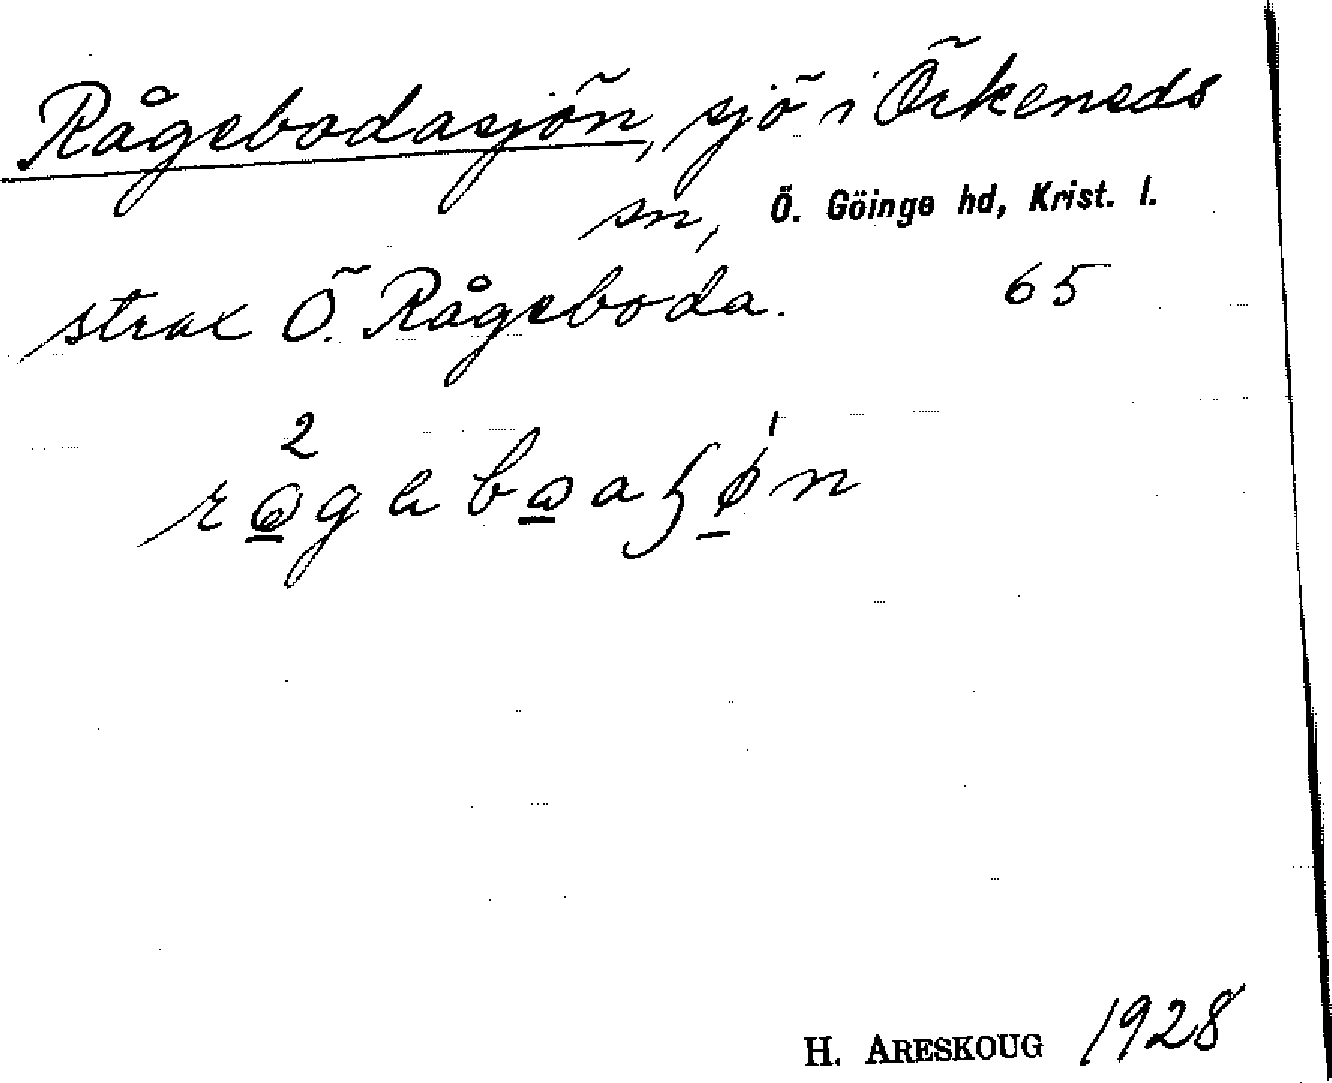 Rågebodasjön, sjö i Örkeneds
sn, Ö. Göinge hd, Krist. l.
strax Ö. Rågeboda. 65
H. ARESKOUG 1928